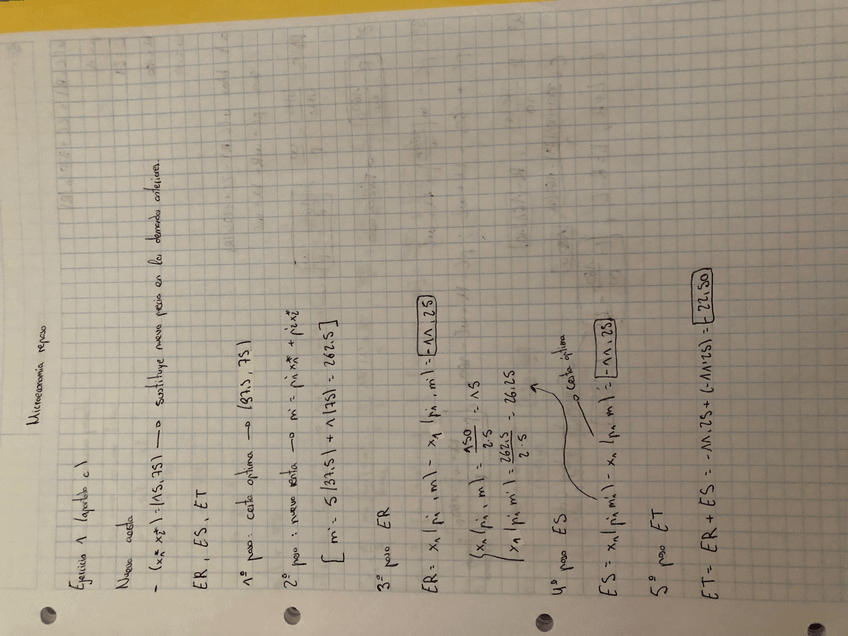 Microeconomía repaso
Ejercicio 1 (apartado c)
Nueva cesta
- (x₁* x₂*) = (15, 75) → sustituye nuevo precio en las demandas anteriores.
ER, ES, ET
1º paso: cesta óptima → (37.5, 75)
2º paso: nueva renta → m' = p₁'x₁* + p₂x₂*
[ m' = 5(37.5) + 1(75) = 262.5 ]
3º paso ER
ER = x₁(p₁', m) - x₁(p₁', m') = -11,25
x₁(p₁', m) = 150 / 2·5 = 15
x₁(p₁' m') = 262.5 / 2·5 = 26.25
4º paso ES
cesta óptima
ES = x₁(p₁' m') - x₁(p₁ m) = -11,25
5º paso ET
ET = ER + ES = -11.25 + (-11'25) = -22,50